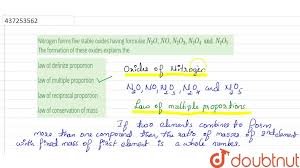 437253562
Nitrogen forms five stable oxides having formulae N₂O, NO, N₂O₃, N₂O₄ and N₂O₅
The formation of these oxides explains the
law of definite proportion
law of multiple proportion ✓
law of reciprocal proportion
law of conservation of mass
Oxides of Nitrogen
N₂O, NO, N₂O₃, N₂O₄ and N₂O₅
Law of multiple proportions
If two elements combines to form
more than one compound then, the ratio of masses of 2nd element
with fixed mass of first element is a whole number.
doubtnut